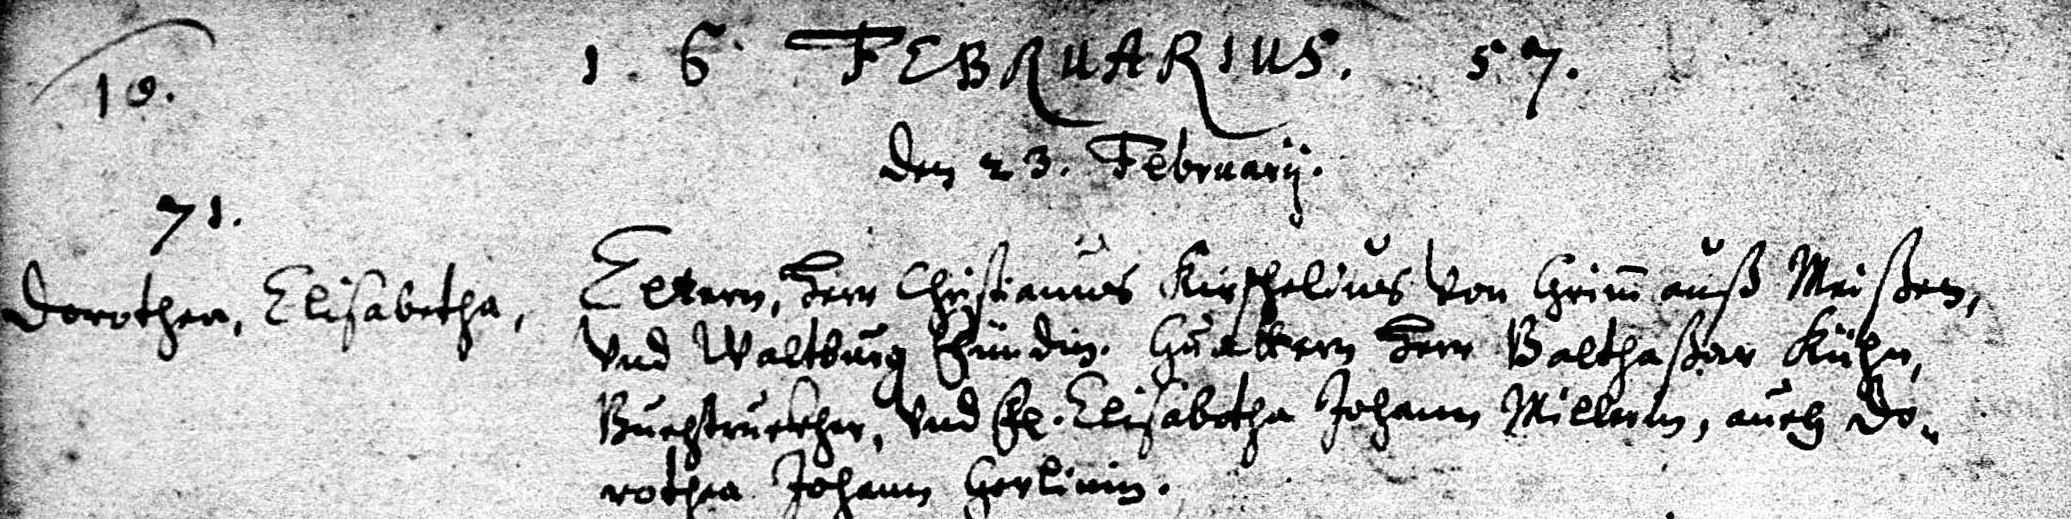 10.
1 6 FEBRUARIUS. 57.
den 23. February.
71.
Dorothea, Elisabetha,
Eltern, Herr Christianus Kirschelius von Grim̄ auß Meißen,
vnd Waltburg Gevattern Herr Balthaßar Kühn,
Buechtrucker, vnd Elisabetha Johann Millerin, auch Do„
rothea Johann Gerlinin.